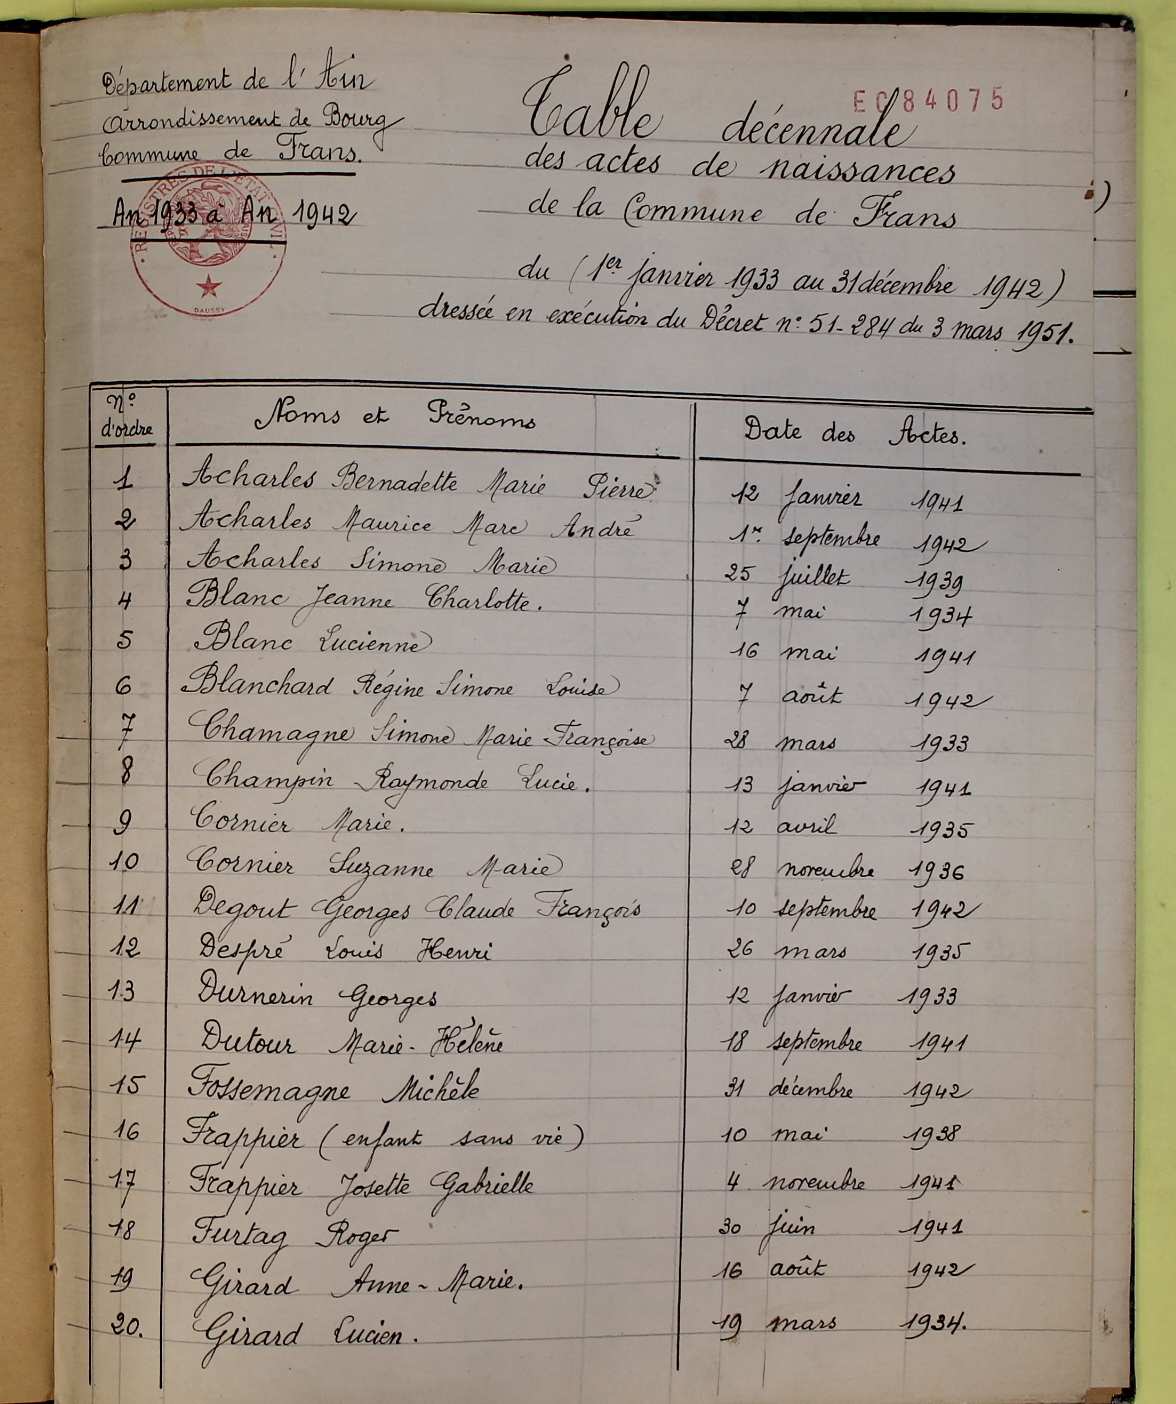 Département de l'Ain
Arrondissement de Bourg
Commune de Frans.
An 1933 à An 1942
REGISTRES DE L'ETAT CIVIL
DAUSSY
EC84075
Table décennale
des actes de naissances
de la Commune de Frans
du (1er janvier 1933 au 31 décembre 1942)
dressée en exécution du Décret n° 51-284 du 3 mars 1951.
N° d'ordre Noms et Prénoms Date des Actes.
1 Acharles Bernadette Marie Pierre 12 janvier 1941
2 Acharles Maurice Marc André 1er septembre 1942
3 Acharles Simone Marie 25 juillet 1939
4 Blanc Jeanne Charlotte. 7 mai 1934
5 Blanc Lucienne 16 mai 1941
6 Blanchard Régine Simone Louise 7 août 1942
7 Chamagne Simone Marie Françoise 28 mars 1933
8 Champin Raymonde Lucie. 13 janvier 1941
9 Cornier Marie. 12 avril 1935
10 Cornier Suzanne Marie 28 novembre 1936
11 Degout Georges Claude François 10 septembre 1942
12 Despré Louis Henri 26 mars 1935
13 Durnerin Georges 12 janvier 1933
14 Dutour Marie-Hélène 18 septembre 1941
15 Fossemagne Michèle 31 décembre 1942
16 Frappier (enfant sans vie) 10 mai 1938
17 Frappier Josette Gabrielle 4 novembre 1941
18 Furtag Roger 30 juin 1941
19 Girard Anne-Marie. 16 août 1942
20. Girard Lucien. 19 mars 1934.